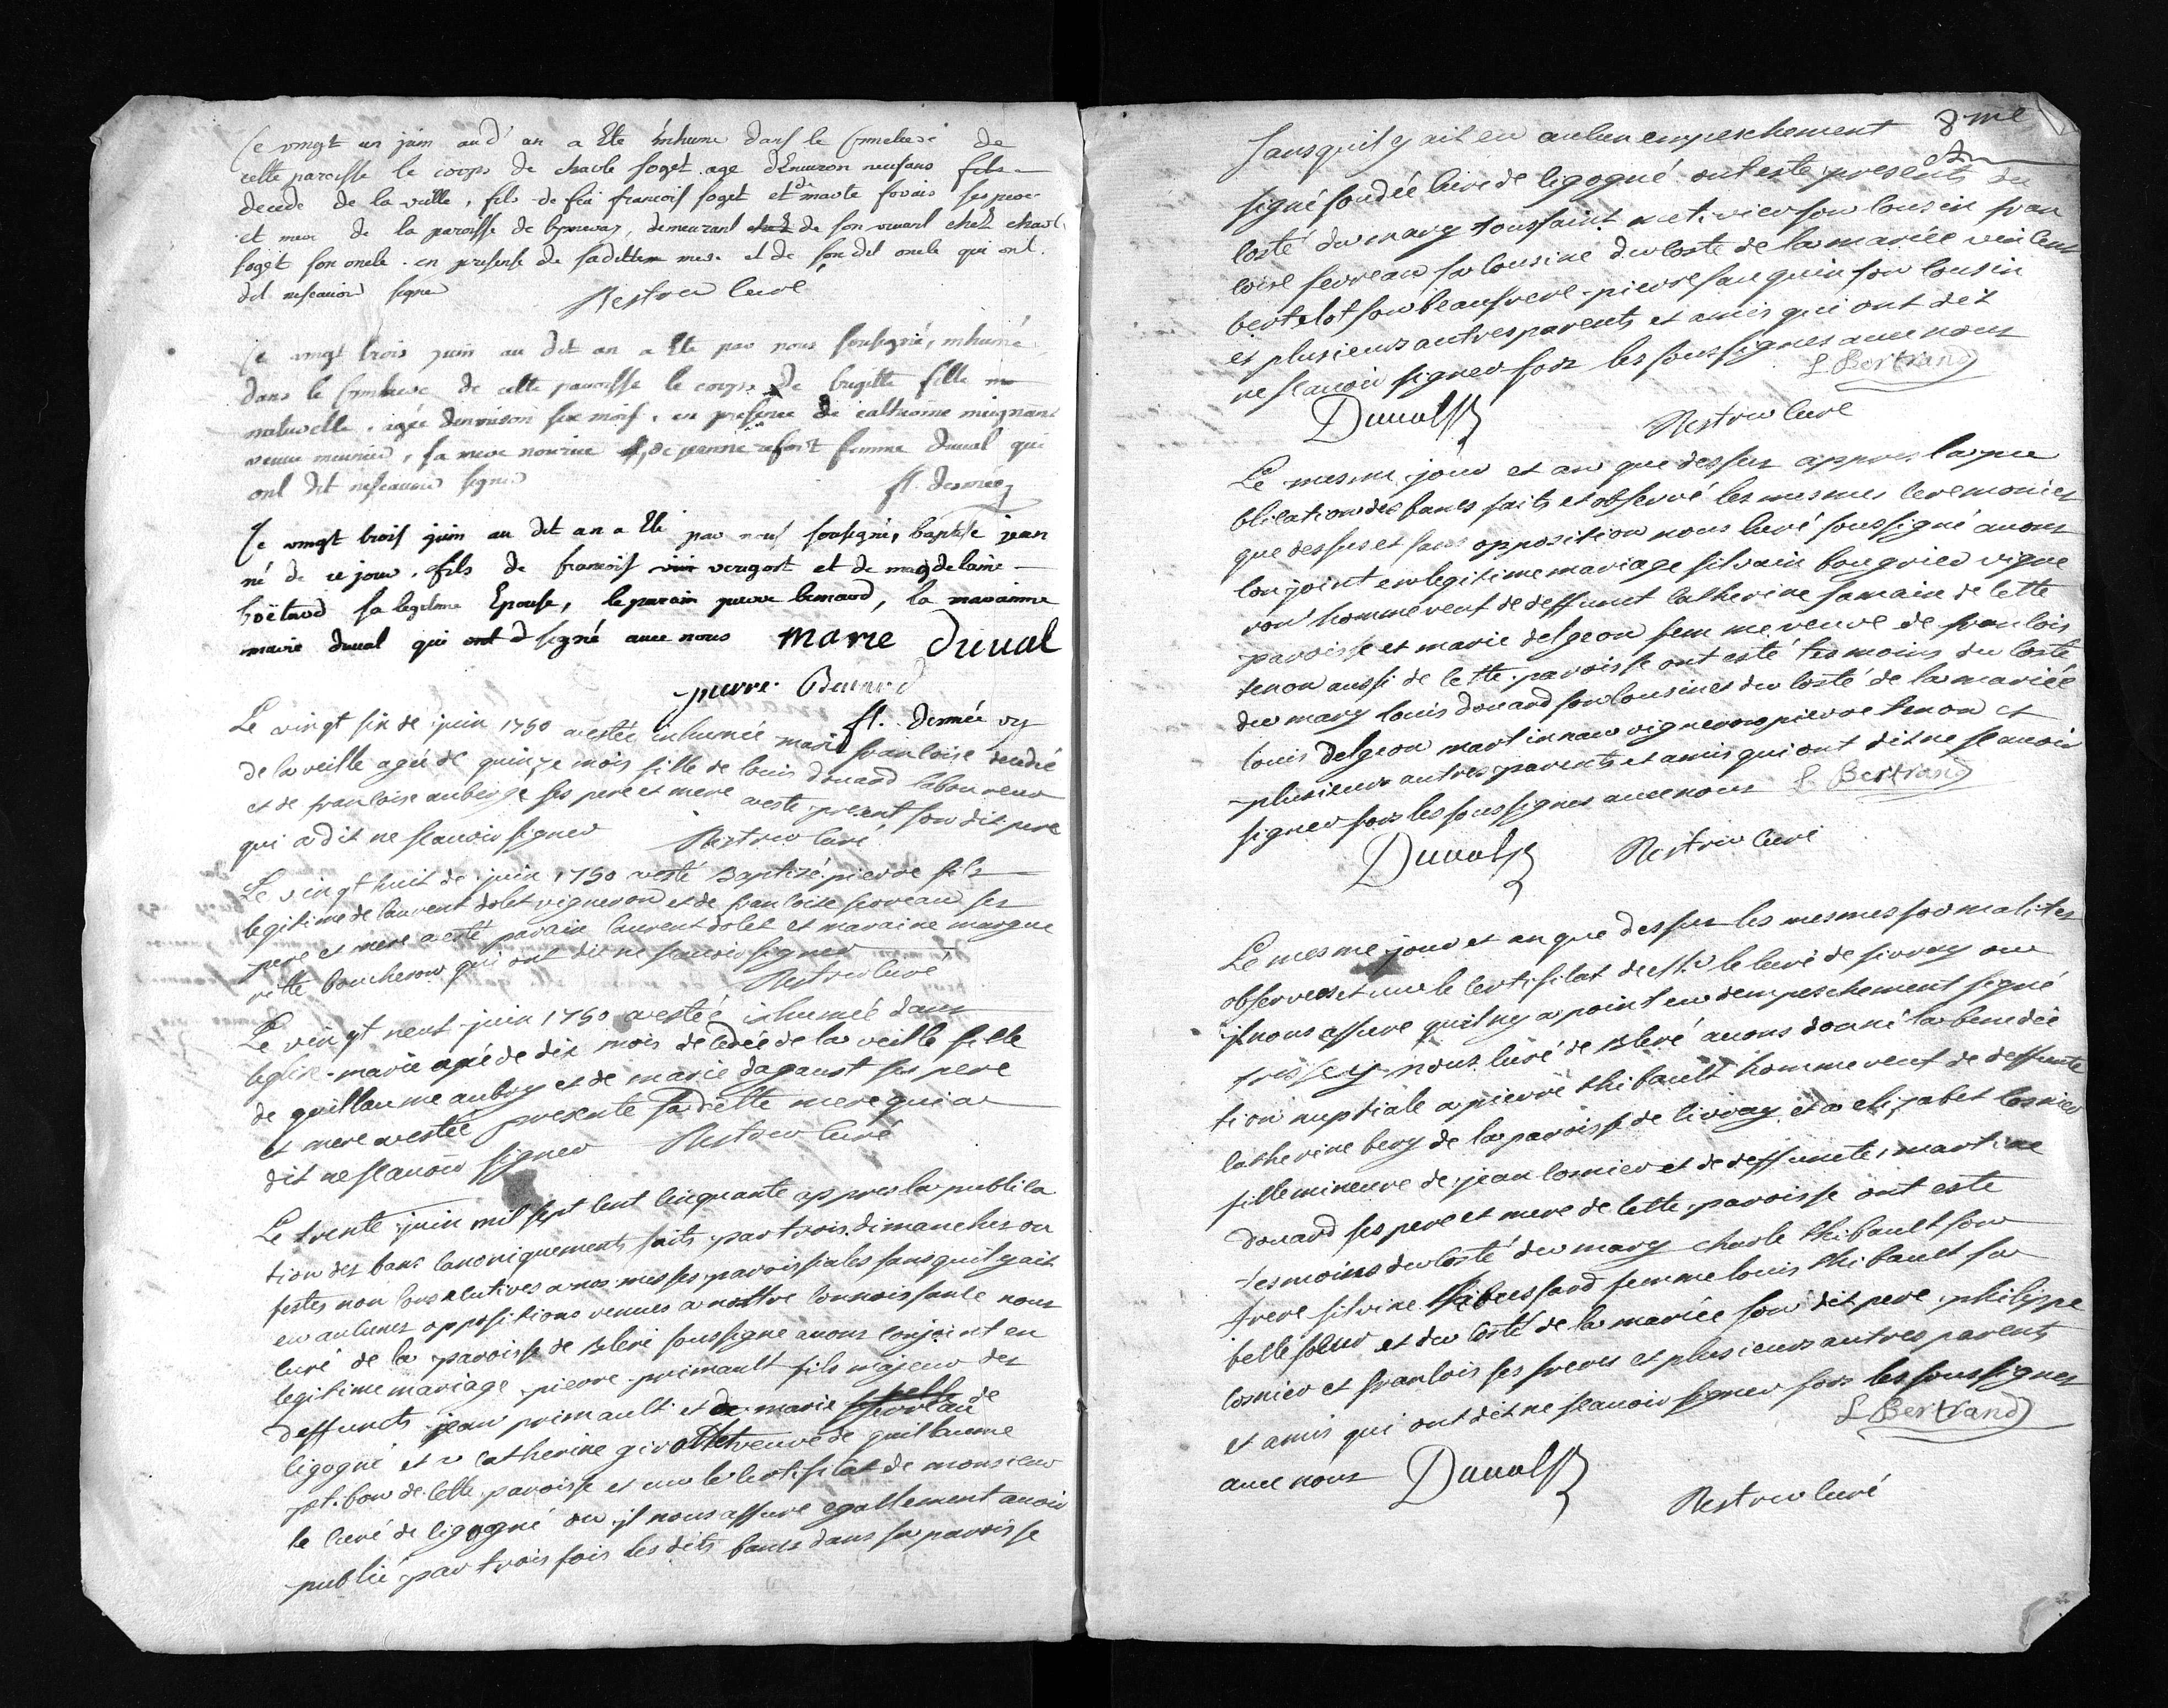 Ce vingt un juin aud' an a Ete inhumé dans le Cimetiere de
cette paroisse le corps de charle foget agé d'Environ neufans fils
decede de la veille, fils de feu francois foget et de marte ses pere
et mere de la paroisse de demeurant chez de son vivant chez charle
foget son oncle en presense de sadittem mere et de son dit oncle qui ont
dit nescavoir signer Restru curé
Ce vingt trois juin au dit an a Ete par nous sousigné, inhumé
dans le Cimetiere de cette paroisse le corps de brigitte fille
naturelle, agée denviron six mois, en presence de catherine meignant
veuve meunier, sa mere nourice et, de jeanne refort femme duval qui
ont dit nescavoir signer fl.
Ce vingt trois juin au dit an a Ete par nous sousigné, baptisé jean
né de ce jour, fils de francois vergost et de magdelaine
boëtard sa legitime Epouse, le parain pierre benard, la maraine
marie duval qui ont d signé avec nous marie duval
pierre Benard
fl.
Le vingt six de juin 1750 a estée inhumée marie francoise decedée
de la veille agée de quinze mois fille de louis douard laboureur
et de francoise auberge ses pere et mere a este present son dit pere
qui a dit ne scavoir signer Restru curé
Le vingt huit de juin 1750 a esté Baptizé pierre fils
legitime de laurent dolet vigneron et de francoise ferreau ses
pere et mere a esté parain laurent dolet et maraine margue
ritte boucheron qui ont dit ne scavoir signer
Restru curé
Le vingt neuf juin 1750 a estée inhumée dans
leglise marie agée de dix mois decedée de la veille fille
de guillaume aubry et de marie dagaust ses pere
et mere a estée presente sa ditte mere qui a
dit ne scavoir signer Restru curé
Le trente juin mil sept cent cinquante appres la publica
tion des bans canoniquements faits par trois dimanches ou
festes non consecutives a nos messes paroissiales sans quil y ait
eu aucunes oppositions venues a nostre connoissance nous
curé de la paroisse de Bleré soussigné avons conjoint en
legitime mariage pierre primault fils majeur des
deffuncts jean primault et de marie ferreau de
ligogné et a catherine girollet veuve de guillaume
ptibon de cette paroisse et vu le certificat de monsieur
le curé de ligogné ou jl nous assure egallement avoir
publié par trois fois les dits bans dans sa paroisse
8 me
sans quil y ait eu aucun empeschement
signé fondée curé de ligogné ont este presents du
costé du mary toussaint metivier son cousin fran
coise ferreau sa cousine du coste de la mariée vincent
bertelot son beaufrere pierre sanquin son cousin
et plusieurs autres parents et amis qui ont dit
ne scavoir signer fors les soussignes avec nous
L Bertrand
Duval Restru curé
Le mesme jour et an que dessus appres la pu
blication des bancs faits et observé les mesmes ceremonies
que dessus et sans opposition nous curé soussigné avons
conjoint en legitime mariage silvain bougrier vigne
ron homme veuf de deffunct catherine samain de cette
paroisse et marie delgeon femme veuve de francois
tenon aussi de cette paroisse ont esté tesmoins du costé
du mary louis douard son cousin et du costé de la mariée
louis delgeon martin naw vigneron pierre tenon et
plusieurs autres parents et amis qui ont dit ne scavoir
signer fors les soussignes avec nous L Bertrand
Duval Restru curé
Le mesme jour et an que dessus les mesmes formalites
observees et vu le certificat de Mr le curé de sivray ou
jl nous assure quil ny a point eu dempeschement signé
nous curé de Bleré avons donné la benedic
tion nuptiale a pierre thibault homme veuf de deffuncte
catherine bery de la paroisse de civray et a elizabet cosnier
fille mineure de jean cosnier et de deffuncte martine
douard ses pere et mere de cette paroisse ont este
tesmoins du costé du mary charle thibault son
frere silvine femme louis thibault sa
belle soeur et du costé de la mariée son dit pere philippe
cosnier et francois ses freres et plusieurs autres parents
et amis qui ont dit ne scavoir signer fors les soussignes
avec nous Duval L Bertrand
Restru curé